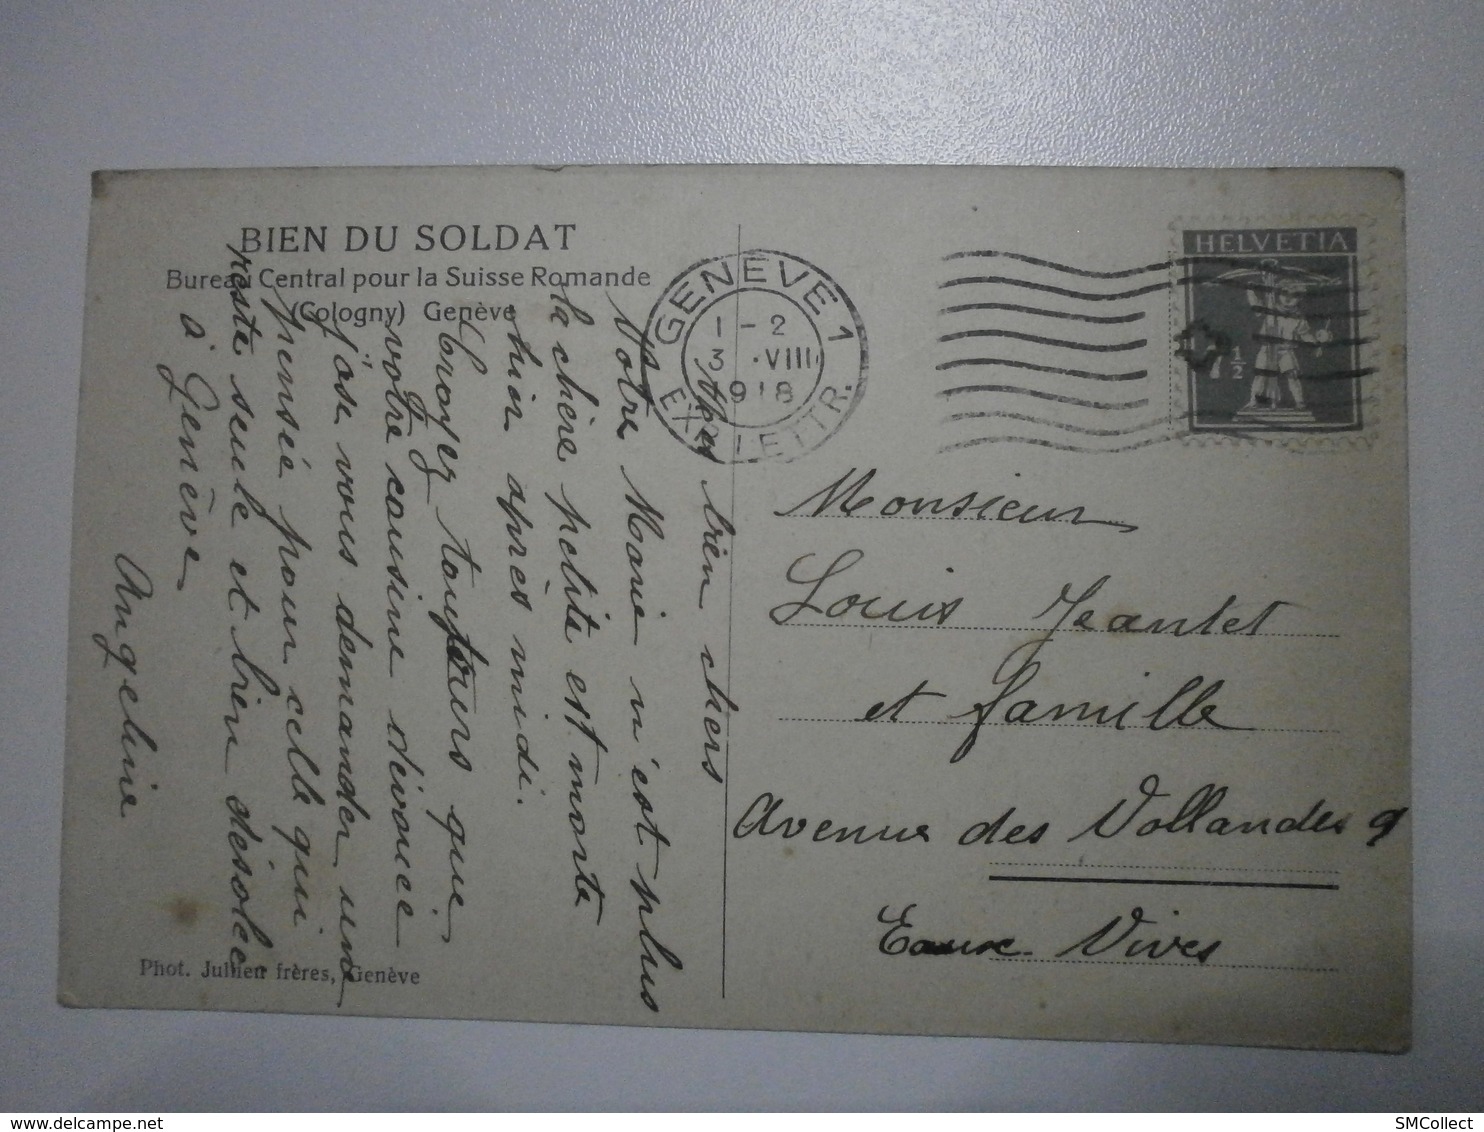 BIEN DU SOLDAT
Bureau Central pour la Suisse Romande
(Cologny) Genève
bien chers
Votre Marie n'est plus
la chère petite est morte
hier après midi.
Croyez toujours que
votre cousine dévouée
j'ose vous demander une
pensée pour celle qui
reste seule et bien désolée
à Genève
Angeline
Phot. Jullien frères, Genève
GENÈVE 1
1-2
3.VIII
1918
EXP. LETTR.
HELVETIA
7½
Monsieur
Louis Jeantet
et famille
Avenue des Vollandes 9
Eaux Vives
SMCollect
delcampe.net